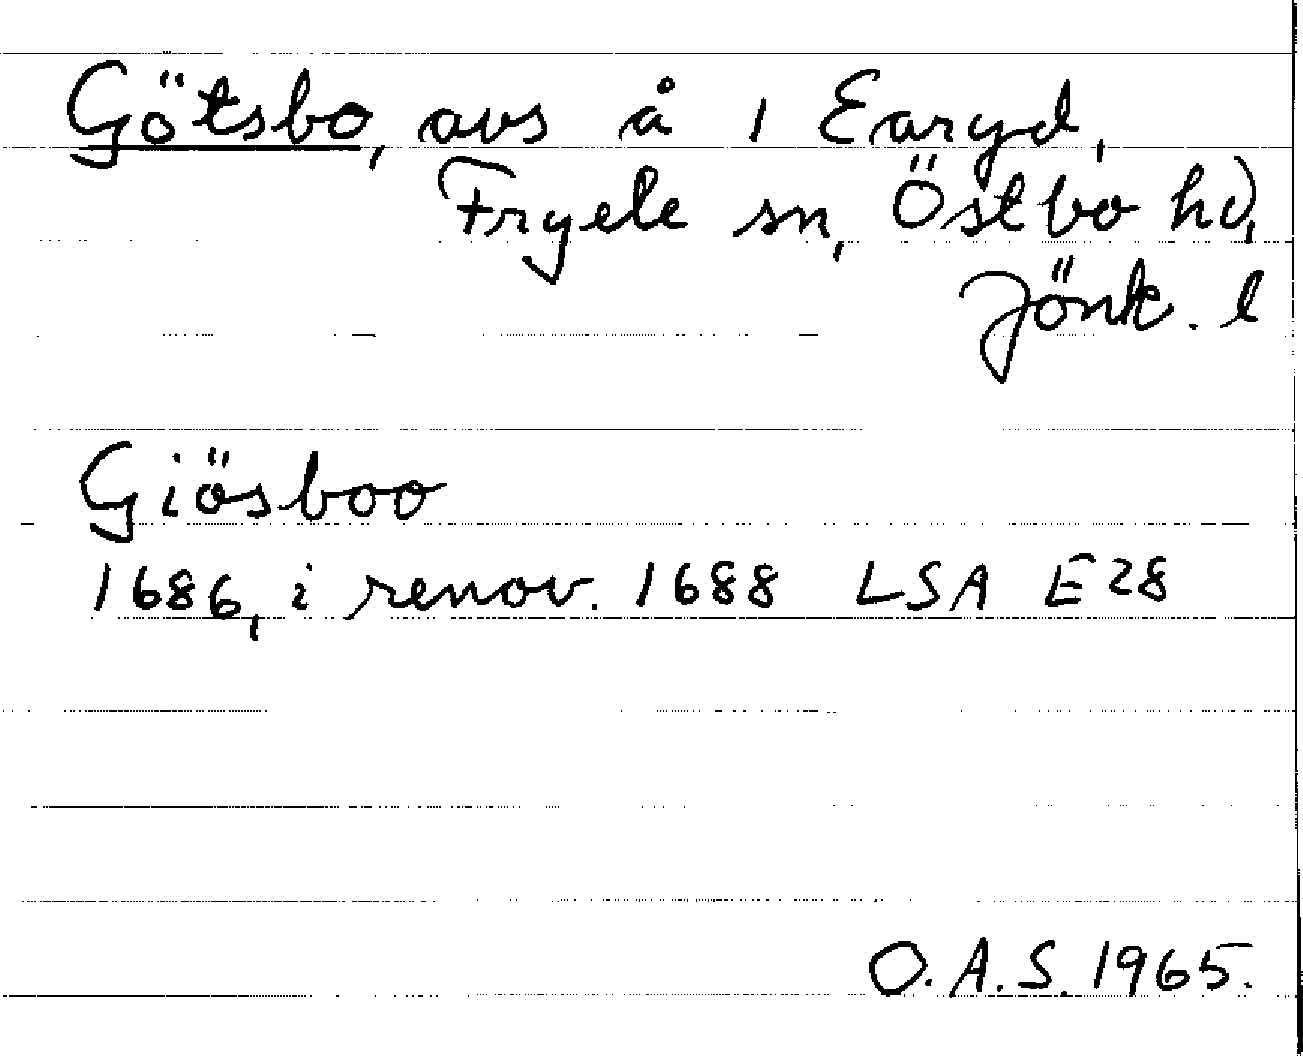 Götsbo, avs å 1 Earyd,
Fryele sn, Östbo hd,
Jönk. l
Giösboo
1686, i renov. 1688 LSA E28
O.A.S. 1965.